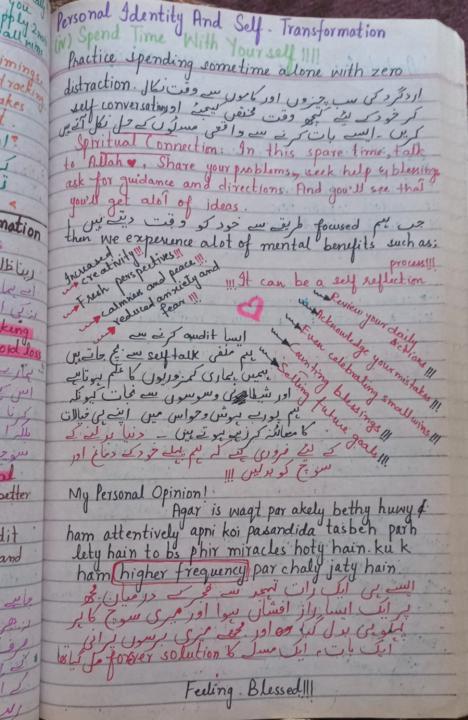 Personal Identity And Self-Transformation
(iv) Spend Time With Yourself !!!!
Practice spending sometime alone with zero
distraction. اردگرد کی سب چیزوں اور کاموں سے وقت نکال
کر خود کے لئے کچھ وقت مختص کیجئے اور self conversation
کریں۔ ایسے بات کرنے سے واقعی مسئلوں کے حل نکل آتے ہیں
Spritual Connection: In this spare time, talk
to Allah♥. Share your problems, seek help & blessings
ask for guidance and directions. And you'll see that
you'll get alot of ideas.
جب ہم focused طریقے سے خود کو وقت دیتے ہیں
then we experence alot of mental benefits such as:
Increased creativity!!!
Fresh perspectives!!!
calmness and peace!!!
reduced anxiety and
fear!!!
It can be a self reflection
process!!!
Review your daily
actions!!!
Acknowledge your mistakes!!!
Even celebrating small wins!!!
Counting blessings!!!
Setting future goals!!!
ایسا audit کرنے سے
ہم منفی self talk سے بچ جاتے ہیں
ہمیں ہماری کمزوریوں کا علم ہوتا ہے
اور شیطانی وسوسوں سے نجات کیونکہ
ہم پورے ہوش و حواس میں اپنے ہی خیالات
کا معائنہ کر رہے ہوتے ہیں۔ دنیا بدلنے کے
لئے ضروری ہے کہ ہم پہلے خود کے دماغ اور
سوچ کو بدلیں !!!
My Personal Opinion!
Agar is waqt par akely bethy huwy
ham attentively apni koi pasandida tasbeh parh
lety hain to bs phir miracles hoty hain. ku k
ham higher frequency par chaly jaty hain
ایسے ہی ایک رات تہجد سے فجر کے درمیان مجھ
پر ایک ایسا راز افشاں ہوا اور میری سوچ کا ہر
پہلو ہی بدل گیا اور مجھے میری برسوں پرانی
ایک بات، ایک مسئلے کا forever solution مل گیا
Feeling Blessed!!!